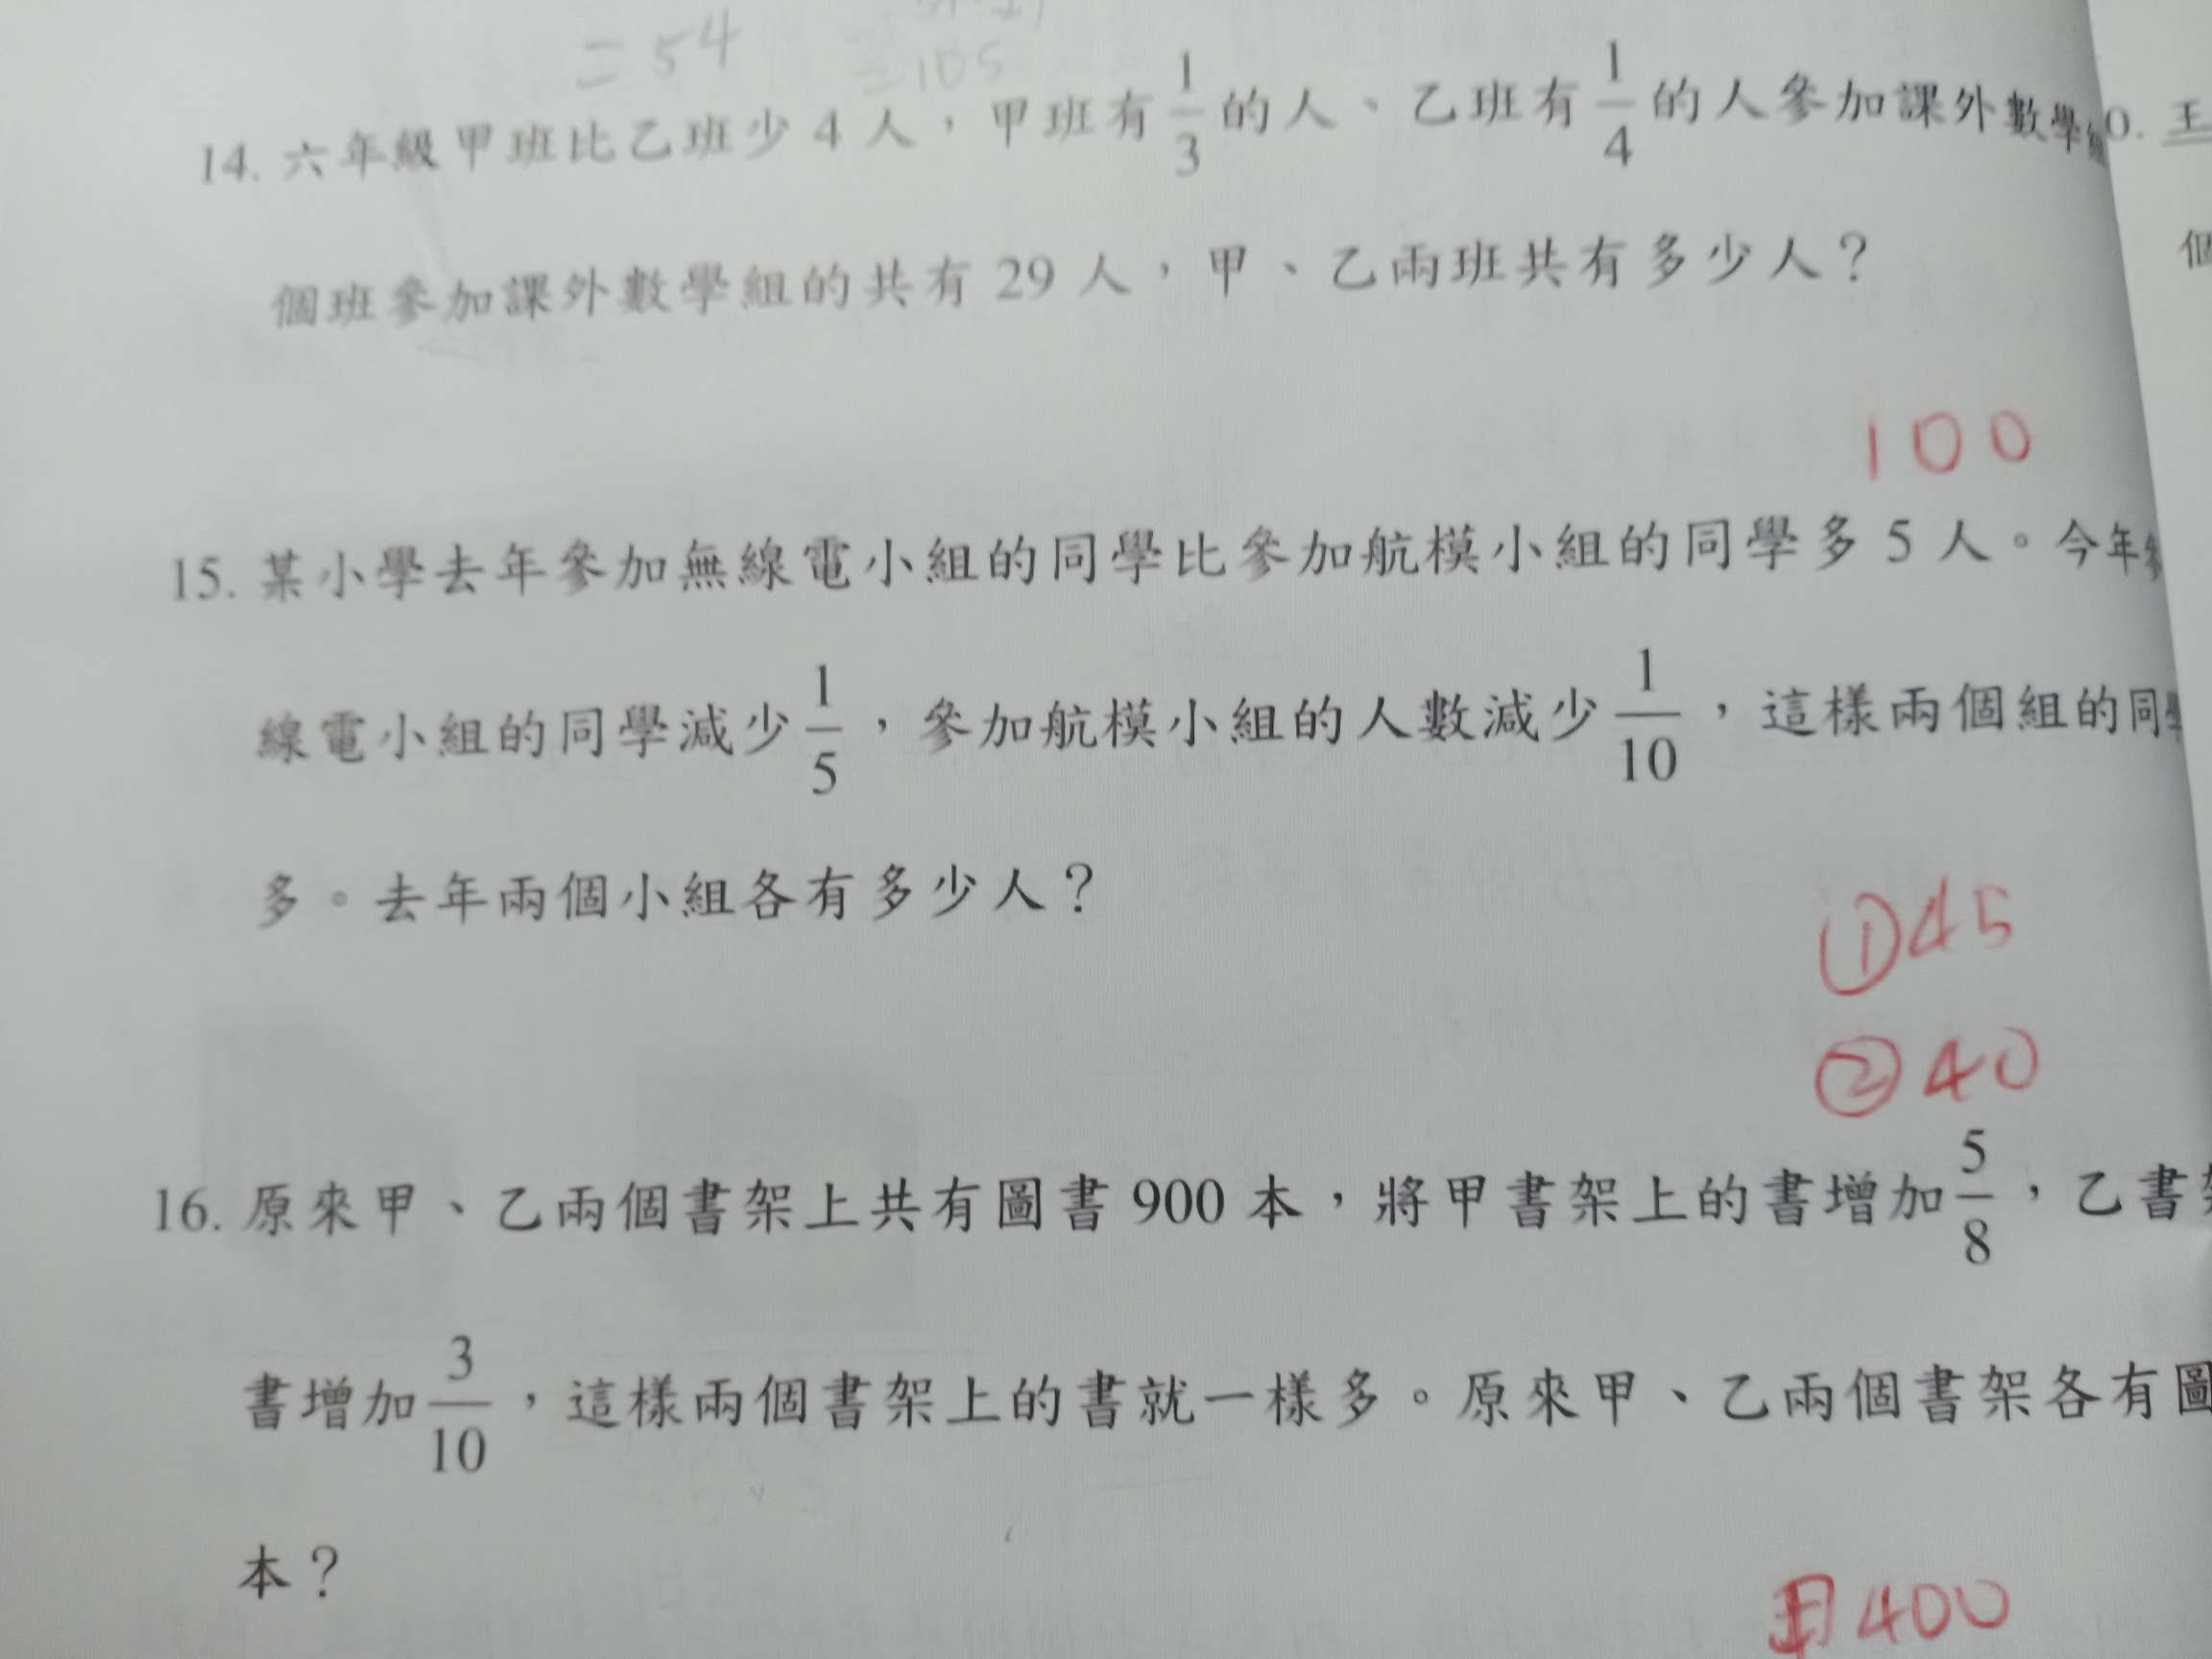 = 54
= 105
14. 六年級甲班比乙班少 4 人，甲班有 1/3 的人、乙班有 1/4 的人參加課外數學組
個班參加課外數學組的共有 29 人，甲、乙兩班共有多少人？
100
15. 某小學去年參加無線電小組的同學比參加航模小組的同學多 5 人。今年
線電小組的同學減少 1/5，參加航模小組的人數減少 1/10，這樣兩個組的同學
多。去年兩個小組各有多少人？
①45
②40
16. 原來甲、乙兩個書架上共有圖書 900 本，將甲書架上的書增加 5/8，乙書
書增加 3/10，這樣兩個書架上的書就一樣多。原來甲、乙兩個書架各有圖
本？
甲400
0. 王
個